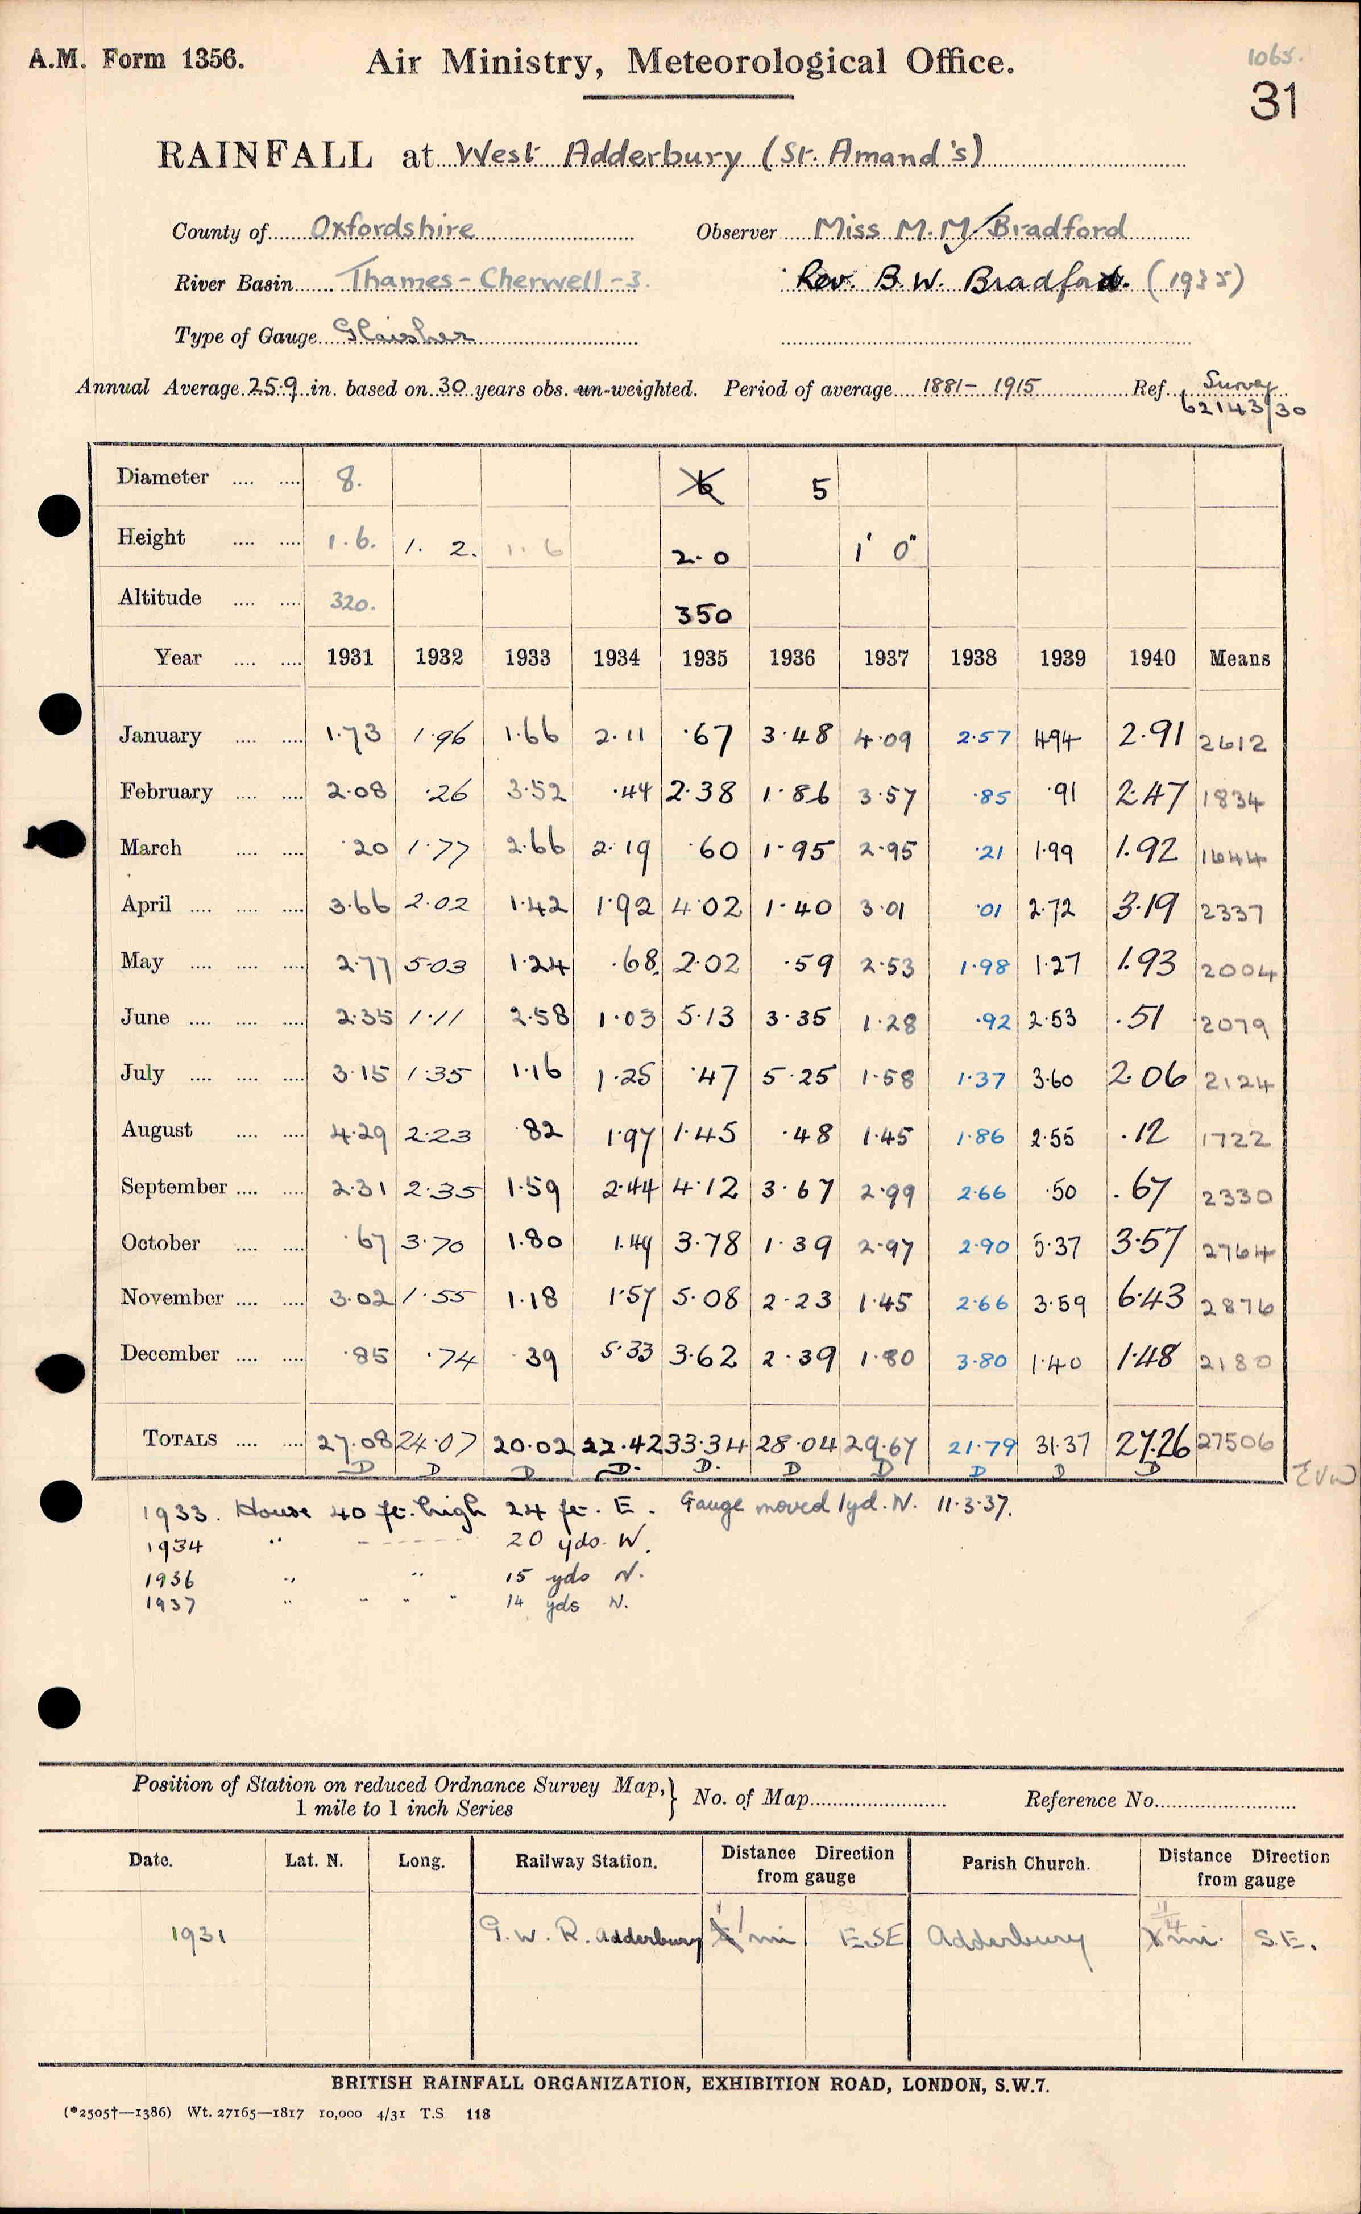 A.M. Form 1356.
Air Ministry, Meteorological Office.
1065.
31
RAINFALL at West Adderbury (St. Amand's)
County of Oxfordshire Observer Miss M. M. Bradford
River Basin Thames - Cherwell - 3. Rev. B. W. Bradford. (1935)
Type of Gauge Glaisher
Annual Average 25.9 in. based on 30 years obs. un-weighted. Period of average 1881 - 1915 Ref. Survey 62143/30
Diameter .... .... 8. 6 5
Height .... .... 1.6. 1. 2. 1. 6 2-0 1' 0"
Altitude .... .... 320. 350
Year .... .... 1931 1932 1933 1934 1935 1936 1937 1938 1939 1940 Means
January .... .... 1.73 1.96 1.66 2.11 .67 3.48 4.09 2.57 4.94 2.91 2612
February .... .... 2.08 .26 3.52 .44 2.38 1.86 3.57 .85 .91 2.47 1834
March .... .... .20 1.77 2.66 2.19 .60 1.95 2.95 .21 1.99 1.92 1644
April .... .... .... 3.66 2.02 1.42 1.92 4.02 1.40 3.01 .01 2.72 3.19 2337
May .... .... .... 2.77 5.03 1.24 .68 2.02 .59 2.53 1.98 1.27 1.93 2004
June .... .... .... 2.35 1.11 2.58 1.03 5.13 3.35 1.28 .92 2.53 .51 2079
July .... .... .... 3.15 1.35 1.16 1.25 .47 5.25 1.58 1.37 3.60 2.06 2124
August .... .... 4.29 2.23 .82 1.97 1.45 .48 1.45 1.86 2.55 .12 1722
September .... .... 2.31 2.35 1.59 2.44 4.12 3.67 2.99 2.66 .50 .67 2330
October .... .... .67 3.70 1.80 1.49 3.78 1.39 2.97 2.90 5.37 3.57 2764
November .... .... 3.02 1.55 1.18 1.57 5.08 2.23 1.45 2.66 3.59 6.43 2876
December .... .... .85 .74 .39 5.33 3.62 2.39 1.80 3.80 1.40 1.48 2180
TOTALS .... .... 27.08 24.07 20.02 22.42 33.34 28.04 29.67 21.79 31.37 27.26 27506
D D D D. D. D D D D D
EVW
1933. House 40 ft. high 24 ft. E. Gauge moved 1yd. N. 11.3.37.
1934 " - - - - - - 20 yds. W.
1936 " " 15 yds N.
1937 " " " " 14 yds N.
Position of Station on reduced Ordnance Survey Map, 1 mile to 1 inch Series } No. of Map Reference No.
Date. Lat. N. Long. Railway Station. Distance Direction from gauge Parish Church. Distance Direction from gauge
1931 G. W. R. Adderbury 1 mi ESE Adderbury 1/4 mi. S.E.
BRITISH RAINFALL ORGANIZATION, EXHIBITION ROAD, LONDON, S.W.7.
(*2505†—1386) Wt. 27165—1817 10,000 4/31 T.S 118